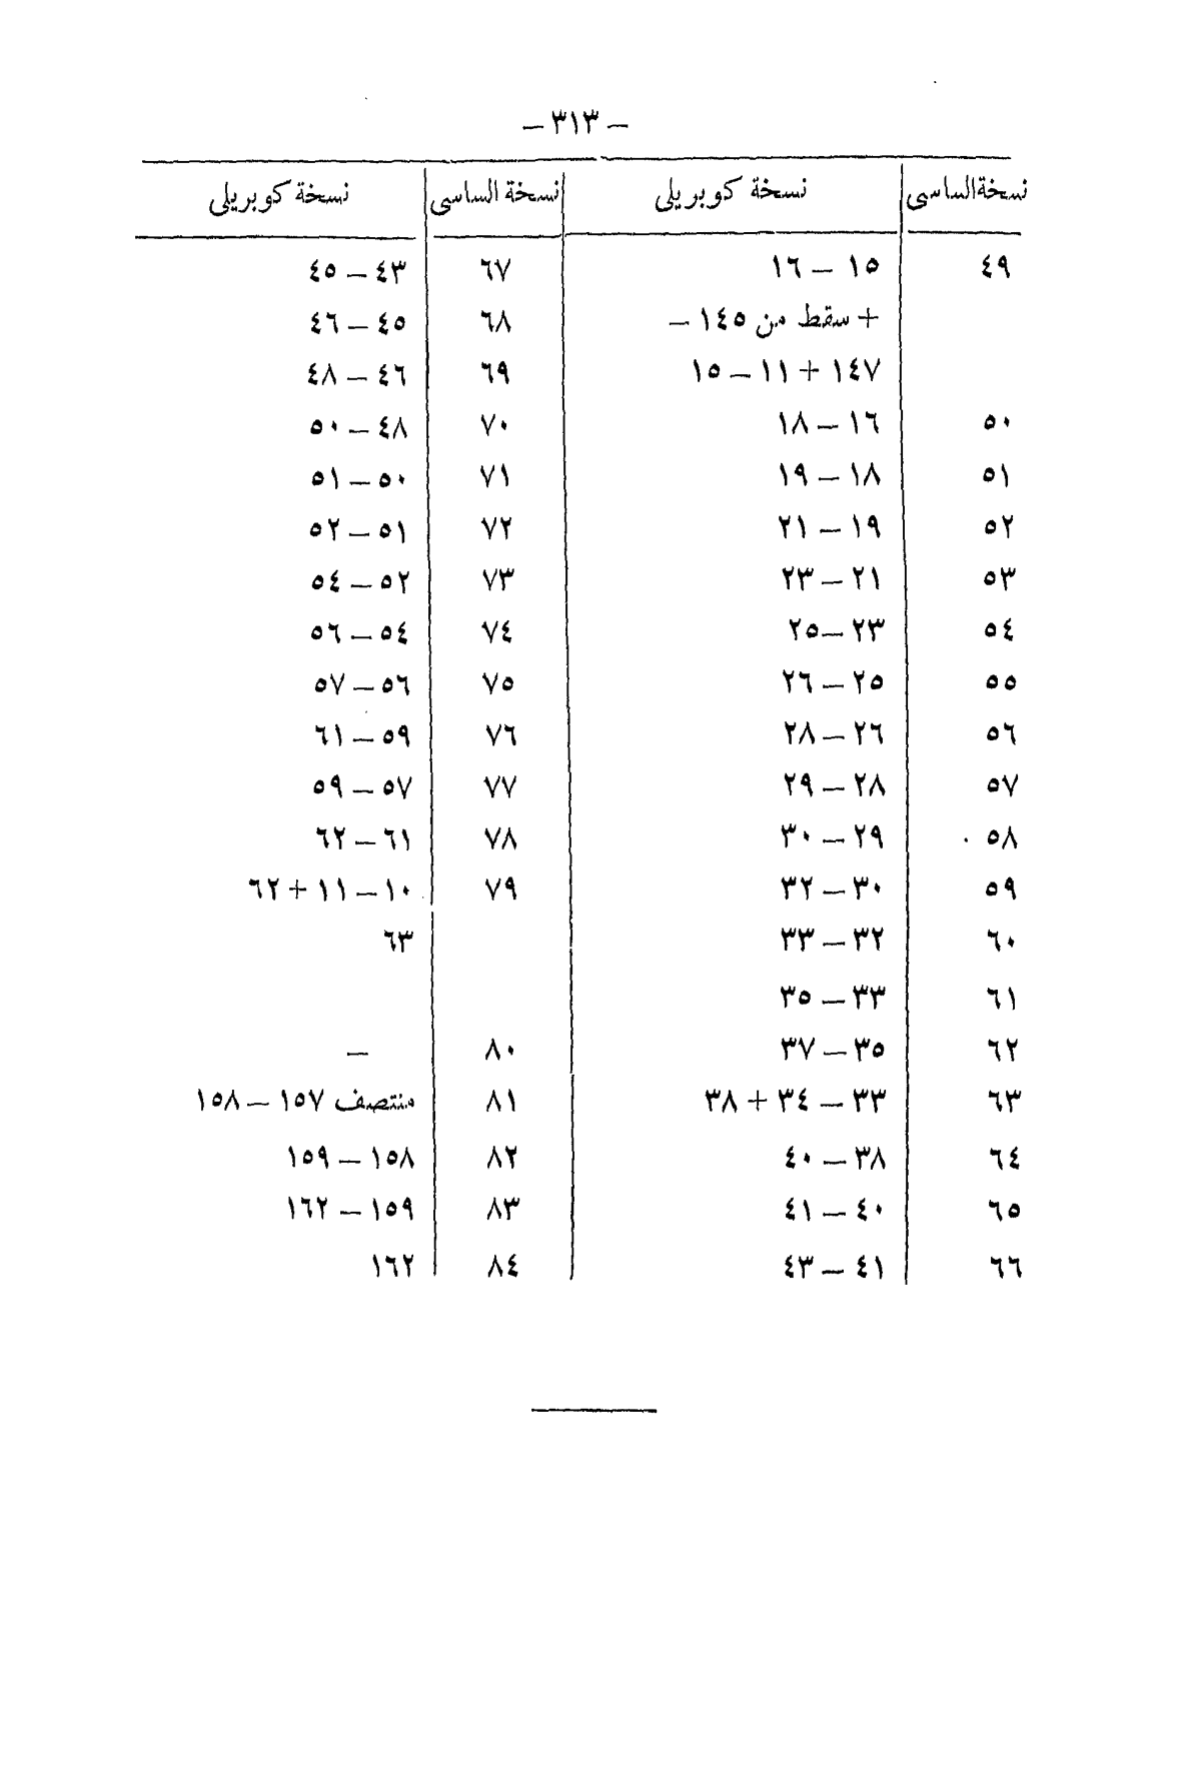 – ٣١٣ –
نسخة الساسى نسخة كوبريلى نسخة الساسى نسخة كوبريلى
٤٩ ١٥ – ١٦ ٦٧ ٤٣ – ٤٥
+ سقط من ١٤٥ – ٦٨ ٤٥ – ٤٦
١٤٧ + ١١ – ١٥ ٦٩ ٤٦ – ٤٨
٥٠ ١٦ – ١٨ ٧٠ ٤٨ – ٥٠
٥١ ١٨ – ١٩ ٧١ ٥٠ – ٥١
٥٢ ١٩ – ٢١ ٧٢ ٥١ – ٥٢
٥٣ ٢١ – ٢٣ ٧٣ ٥٢ – ٥٤
٥٤ ٢٣ – ٢٥ ٧٤ ٥٤ – ٥٦
٥٥ ٢٥ – ٢٦ ٧٥ ٥٦ – ٥٧
٥٦ ٢٦ – ٢٨ ٧٦ ٥٩ – ٦١
٥٧ ٢٨ – ٢٩ ٧٧ ٥٧ – ٥٩
٥٨ ٢٩ – ٣٠ ٧٨ ٦١ – ٦٢
٥٩ ٣٠ – ٣٢ ٧٩ ١٠ – ١١ + ٦٢
٦٠ ٣٢ – ٣٣ ٦٣
٦١ ٣٣ – ٣٥
٦٢ ٣٥ – ٣٧ ٨٠ –
٦٣ ٣٣ – ٣٤ + ٣٨ ٨١ منتصف ١٥٧ – ١٥٨
٦٤ ٣٨ – ٤٠ ٨٢ ١٥٨ – ١�٩
٦٥ ٤٠ – ٤١ ٨٣ ١٥٩ – ١٦٢
٦٦ ٤١ – ٤٣ ٨٤ ١٦٢